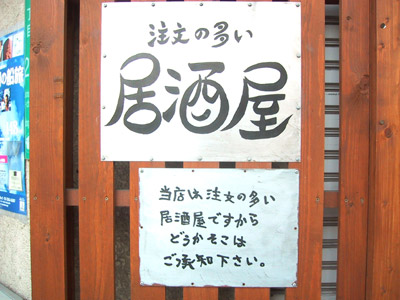 注文の多い
居酒屋
当店は注文の多い
居酒屋ですから
どうかそこは
ご承知下さい。